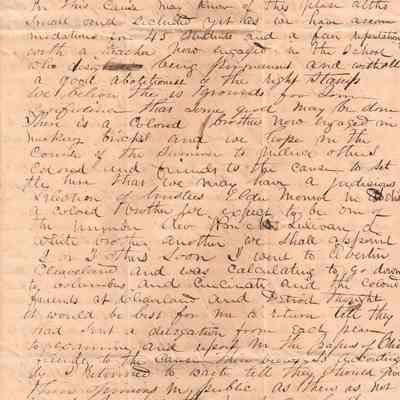 in this cause may know of this place altho
small and secluded yet has we have accom
modations for 45 students and a fair reputation
with a teacher now engaged in the School
who being permanent and withall
a good abolitionest of the right Stamp
We believe the is grounds for Som
confidence that some good may be done
Thare is a Colored brother now engaged in
makeing brickes and we hope in the
Course of the Summer to induce others
Colored and friends to the Cause to set
tle here that we may have a judicious
direction of Trustees Elder
a Colored brother we expect to be one of
the number Rev
white brother another we shall appoint
1 or 2 others Soon I went to oberlin
Cleaveland and was calculating to go down
to columbus and Cincinati and the colored
friends at Cleaveland and Detroit thought
it would be best for me to return tell they
had sent a deligation from each place
to examine and report in the papers of Ohio
friendly to the Cause
ly I returned to wait tell they should give
there opinions in public as there is not